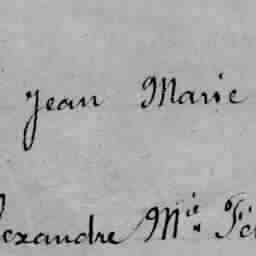 Jean Marie
lexandre M.ie Fé